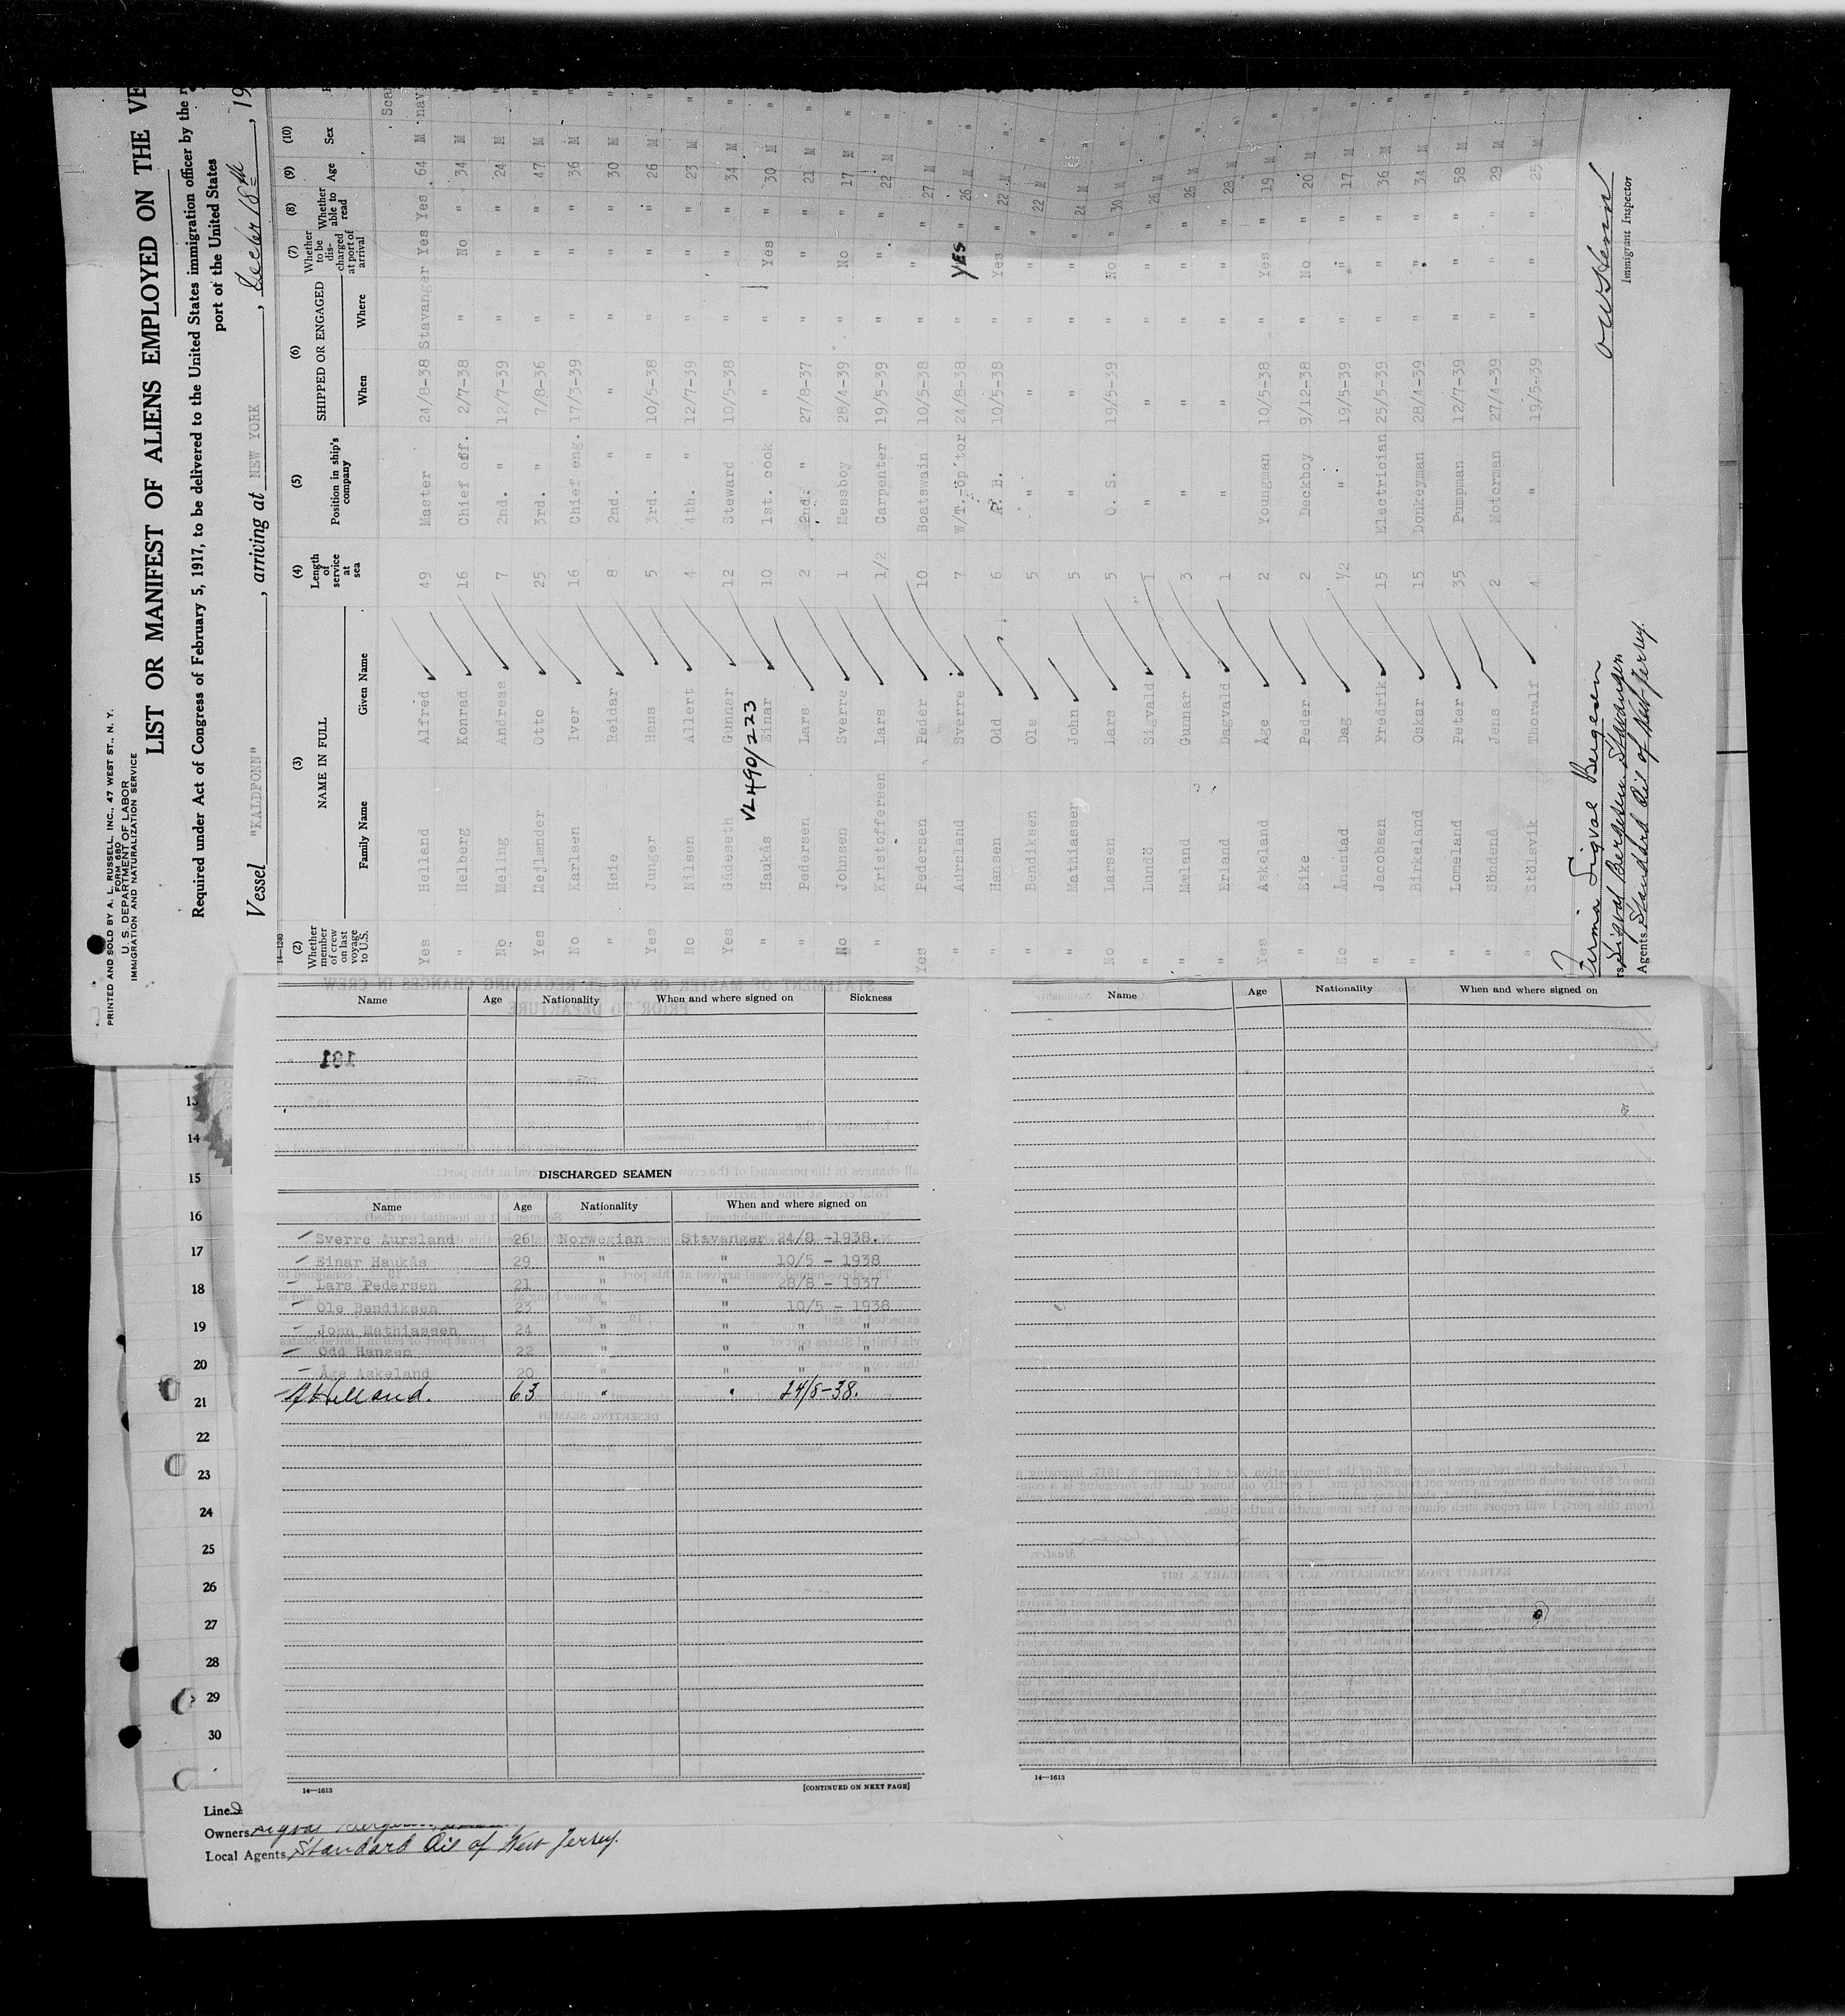 PRINTED AND SOLD BY A. L. RUSSELL, INC., 47 WEST ST., N. Y.
FORM 680
U. S. DEPARTMENT OF LABOR
IMMIGRATION AND NATURALIZATION SERVICE
LIST OR MANIFEST OF ALIENS EMPLOYED ON THE VE
Required under Act of Congress of February 5, 1917, to be delivered to the United States immigration officer by the r
port of the United States
Vessel "KALDFONN", arriving at NEW YORK, 18th, 19
14—1240
(2) (3) (4) (5) (6) (7) (8) (9) (10)
Whether member of crew on last voyage to U.S. NAME IN FULL Length of service at sea Position in ship's company SHIPPED OR ENGAGED Whether to be discharged at port of arrival Whether able to read Age Sex
Family Name Given Name When Where
Yes Helland Alfred 49 Master 24/8-38 Stavanger Yes Yes 64 M
" Helberg Konrad 16 Chief off. 2/7-38 " No " 34 M "
No Meling Andreas 7 2nd. " 12/7-39 " " " 24 M "
Yes Mejlænder Otto 25 3rd. " 7/8-36 " " " 47 M "
No Karlsen Iver 16 Chief eng. 17/3-39 " " " 36 M "
" Høie Reidar 8 2nd. " " " " " 30 M "
Yes Junger Hans 5 3rd. " 10/5-38 " " " 26 M "
No Nilsen Allert 4 4th. " 12/7-39 " " " 23 M "
Yes Gådeseth Gunnar 12 Steward 10/5-38 " " " 34 M "
VL 490/223
" Haukås Einar 10 1st. cook " " Yes " 30 M "
" Pedersen Lars 2 2nd. " 27/8-37 " " " 21 M "
No Johnsen Sverre 1 Messboy 28/4-39 " No " 17 M "
" Kristoffersen Lars 1/2 Carpenter 19/5-39 " " " 22 M "
Yes Pedersen Peder 10 Boatswain 10/5-38 " " " 27 M "
" Aursland Sverre 7 W/T.-op'tor 24/8-38 " YES " 26 M "
" Hansen Odd 6 A. B. 10/5-38 " Yes " 22 M "
" Bendiksen Ole 5 " " " " " 22 M "
" Mathiassen John 5 " " " " " 24 M "
No Larsen Lars 5 O. S. 19/5-39 " No " 30 M "
" Lundö Sigvald 1 " " " " " 26 M "
" Mæland Gunnar 3 " " " " " 26 M "
" Erland Dagvald 1 " " " " " 28 M "
Yes Askeland Åge 2 Youngman 10/5-38 " Yes " 19 M "
" Eike Peder 2 Deckboy 9/12-38 " No " 20 M "
No Ånestad Dag 1/2 " 19/5-39 " " " 17 M "
" Jacobsen Fredrik 15 Electrician 25/5-39 " " " 36 M "
" Birkeland Oskar 15 Donkeyman 28/4-39 " " " 34 M "
" Lomeland Peter 35 Pumpman 12/7-39 " " " 58 M "
" Söndenå Jens 2 Motorman 27/4-39 " " " 29 M "
" Stölsvik Thoralf 4 " 19/5-39 " " " 25 M "
Firma Sigval Bergesen
rs Sigval Bergesen Stavanger
Agents Standard Oil of New Jersey.
Immigrant Inspector
Name Age Nationality When and where signed on Sickness
191
DISCHARGED SEAMEN
Name Age Nationality When and where signed on
Sverre Aursland 26 Norwegian Stavanger 24/8 -1938.
Einar Haukås 29 " " 10/5 - 1938
Lars Pedersen 21 " " 28/8 - 1937
Ole Bendiksen 23 " " 10/5 - 1938
John Mathiassen 24 " " " "
Odd Hansen 22 " " " "
Åge Askeland 20 " " " "
A Helland. 63 " " 24/8-38.
14—1613 [CONTINUED ON NEXT PAGE]
Name Age Nationality When and where signed on
14—1613
13
14
15
16
17
18
19
20
21
22
23
24
25
26
27
28
29
30
Line
Owners
Local Agents Standard Oil of New Jersey.